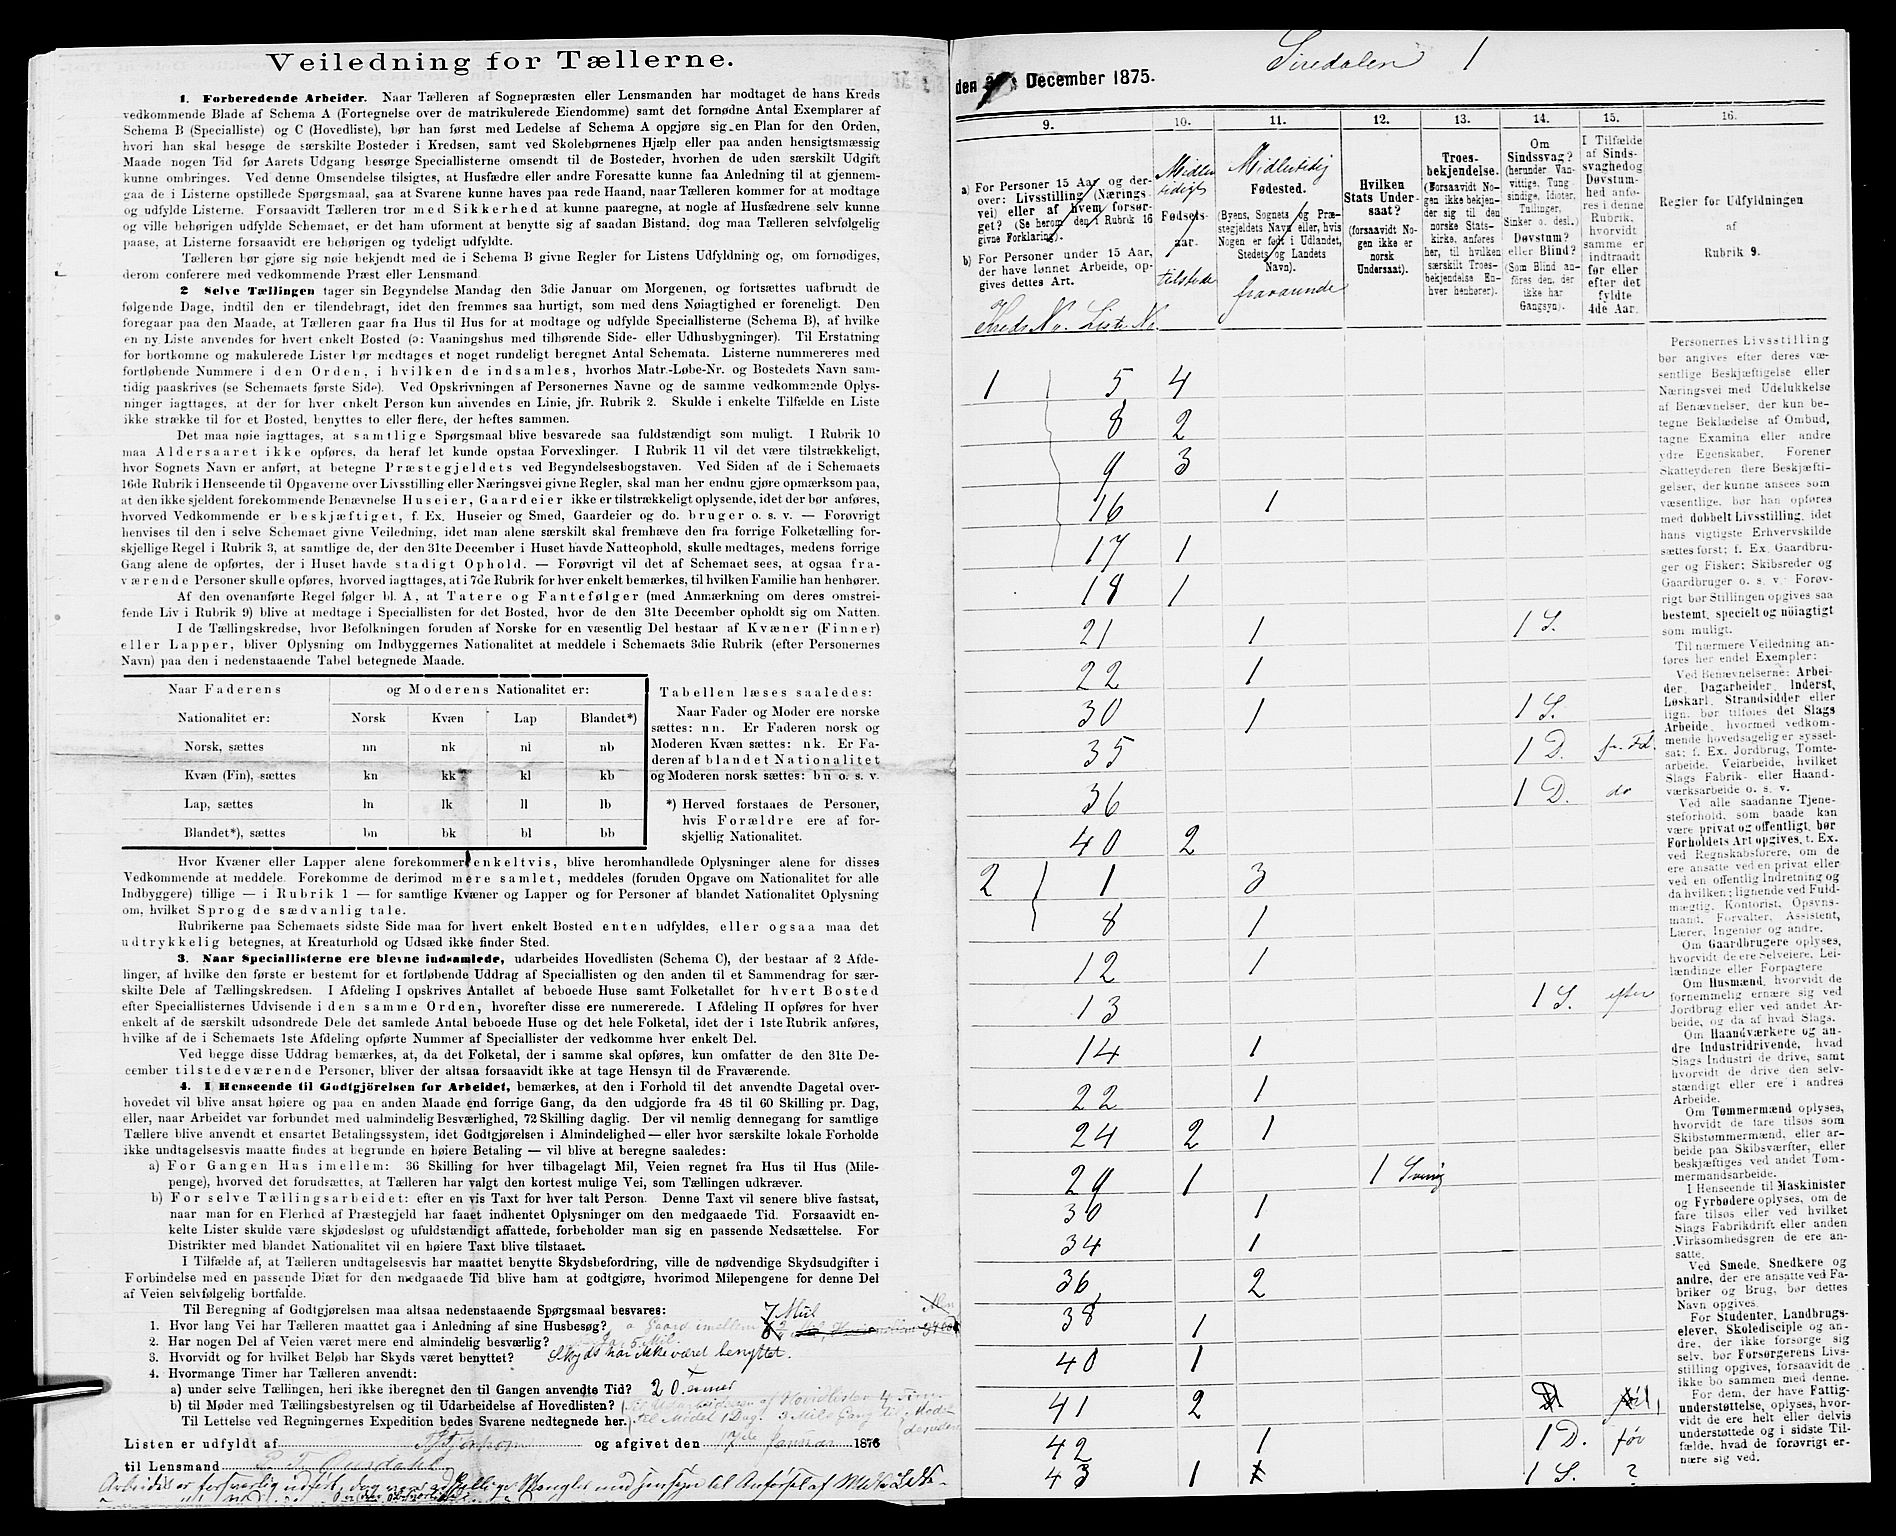 Veiledning for Tællerne.
1. Forberedende Arbeider. Naar Tælleren af Sognepræsten eller Lensmanden har modtaget de hans Kreds
vedkommende Blade af Schema A (Fortegnelse over de matrikulerede Eiendomme) samt det fornødne Antal Exemplarer af
Schema B (Specialliste) og C (Hovedliste), bør han først med Ledelse af Schema A opgjøre sig en Plan for den Orden,
hvori han skal besøge de særskilte Bosteder i Kredsen, samt ved Skolebørnenes Hjælp eller paa anden hensigtsmæssig
Maade nogen Tid før Aarets Udgang besørge Speciallisterne omsendt til de Bosteder, hvorhen de uden særskilt Udgift
kunne ombringes. Ved denne Omsendelse tilsigtes, at Husfædre eller andre Foresatte kunne faa Anledning til at gjennem-
gaa de i Listerne opstillede Spørgsmaal, saa at Svarene kunne haves paa rede Haand, naar Tælleren kommer for at modtage
og udfylde Listerne. Forsaavidt Tælleren tror med Sikkerhed at kunne paaregne, at nogle af Husfædrene selv kunne
og ville behørigen udfylde Schemaet, er det ham uformeent at benytte sig af saadan Bistand, dog maa Tælleren selvfølgelig
paase, at Listerne forsaavidt ere behørigen og tydeligt udfyldte.
Tælleren bør gjøre sig nøie bekjendt med de i Schema B givne Regler for Listens Udfyldning og, om fornødiges,
derom conferere med vedkommende Præst eller Lensmand
2 Selve Tællingen tager sin Begyndelse Mandag den 3die Januar om Morgenen, og fortsættes uafbrudt de
følgende Dage, indtil den er tilendebragt, idet den fremmes saa hurtigt, som med dens Nøiagtighed er foreneligt. Den
foregaar paa den Maade, at Tælleren gaar fra Hus til Hus for at modtage og udfylde Speciallisterne (Schema B), af hvilke
en ny Liste anvendes for hvert enkelt Bosted (ɔ: Vaaningshus med tilhørende Side- eller Udhusbygninger). Til Erstatning
for bortkomne og makulerede Lister bør medtages et noget rundeligt beregnet Antal Schemata. Listerne nummereres med
fortløbende Nummere i den Orden, i hvilken de indsamles, hvorhos Matr.-Løbe-Nr. og Bostedets Navn sam-
tidig paaskrives (se Schemaets første Side). Ved Opskrivningen af Personernes Navne og de samme vedkommende Oplys-
ninger iagttages, at der for hver enkelt Person kun anvendes en Linie, jfr. Rubrik 2. Skulde i enkelte Tilfælde en Liste
ikke strække til for et Bosted, benyttes to eller flere, der heftes sammen.
Det maa nøie iagttages, at samtlige Spørgsmaal blive besvarede saa fuldstændigt som muligt. I Rubrik 10
maa Aldersaaret ikke opføres, da heraf let kunde opstaa Forvexlinger. I Rubrik 11 vil det være tilstrækkeligt,
hvor Sognets Navn er anført, at betegne Præstegjeldets ved Begyndelsesbogstaven. Ved Siden af de i Schemaets
16de Rubrik i Henseende til Opgaverne over Livsstilling eller Næringsvei givne Regler, skal man her endnu gjøre opmærksom paa,
at den ikke sjeldent forekommende Benævnelse Huseier, Gaardeier ikke er tilstrækkeligt oplysende, idet der bør anføres,
hvorved Vedkommende er beskjæftiget, f. Ex. Huseier og Smed, Gaardeier og do. bruger o. s. v. — Forøvrigt
henvises til den i selve Schemaet givne Veiledning, idet man alene særskilt skal fremhæve den fra forrige Folketælling for-
skjellige Regel i Rubrik 3, at samtlige de, der den 31te December i Huset havde Natteophold, skulle medtages, medens forrige
Gang alene de opførtes, der i Huset havde stadigt Ophold. — Forøvrigt vil det af Schemaet sees, at ogsaa fra-
værende Personer skulle opføres, hvorved iagttages, at i 7de Rubrik for hver enkelt bemærkes, til hvilken Familie han henhører.
Af den ovenanførte Regel følger bl. A, at Tatere og Fantefølger (med Anmærkning om deres omstrei-
fende Liv i Rubrik 9) blive at medtage i Speciallisten for det Bosted, hvor de den 31te December opholdt sig om Natten.
I de Tællingskredse, hvor Befolkningen foruden af Norske for en væsentlig Del bestaar af Kvæner (Finner)
eller Lapper, bliver Oplysning om Indbyggernes Nationalitet at meddele i Schemaets 3die Rubrik (efter Personernes
Navn) paa den i nedenstaaende Tabel betegnede Maade.
Naar Faderens og Moderens Nationalitet er:
Nationalitet er: Norsk Kvæn Lap Blandet*)
Norsk, sættes nn nk nl nb
Kvæn (Fin), sættes kn kk kl kb
Lap, sættes ln lk ll lb
Blandet*), sættes bn bk bl bb
Tabellen læses saaledes:
Naar Fader og Moder ere norske
sættes: nn. Er Faderen norsk og
Moderen Kvæn sættes: nk. Er Fa-
deren af blandet Nationalitet
og Moderen norsk sættes: bn o. s. v.
*) Herved forstaaes de Personer,
hvis Forældre ere af for-
skjellig Nationalitet.
Hvor Kvæner eller Lapper alene forekomme enkeltvis, blive heromhandlede Oplysninger alene for disses
Vedkommende at meddele. Forekomme de derimod mere samlet, meddeles (foruden Opgave om Nationalitet for alle
Indbyggere) tillige — i Rubrik 1 — for samtlige Kvæner og Lapper og for Personer af blandet Nationalitet Oplysning
om, hvilket Sprog de sædvanlig tale.
Rubrikerne paa Schemaets sidste Side maa for hvert enkelt Bosted enten udfyldes, eller ogsaa maa det
udtrykkelig betegnes, at Kreaturhold og Udsæd ikke finder Sted.
3. Naar Speciallisterne ere blevne indsamlede, udarbeides Hovedlisten (Schema C), der bestaar af 2 Afde-
linger, af hvilke den første er bestemt for et fortløbende Uddrag af Speciallisten og den anden til et Sammendrag for sær-
skilte Dele af Tællingskredsen. I Afdeling I opskrives Antallet af beboede Huse samt Folketallet for hvert Bosted
efter Speciallisternes Udvisende i den samme Orden, hvorefter disse ere numererede. I Afdeling II opføres for hver
enkelt af de særskilt udsondrede Dele det samlede Antal beboede Huse og det hele Folketal, idet der i 1ste Rubrik anføres,
hvilke af de i Schemaets 1ste Afdeling opførte Nummer af Speciallister der vedkomme hver enkelt Del.
Ved begge disse Uddrag bemærkes, at, da det Folketal, der i samme skal opføres, kun omfatter de den 31te De-
cember tilstedeværende Personer, bliver der altsaa forsaavidt ikke at tage Hensyn til de Fraværende.
4. I Henseende til Godtgjörelsen for Arbeidet, bemærkes, at den i Forhold til det anvendte Dagetal over-
hovedet vil blive ansat høiere og paa en anden Maade end forrige Gang, da den udgjorde fra 48 til 60 Skilling pr. Dag,
eller, naar Arbeidet var forbundet med ualmindelig Besværlighed, 72 Skilling daglig. Der vil nemlig dennegang for samtlige
Tællere blive anvendt et ensartet Betalingssystem, idet Godtgjörelsen i Almindelighed — eller hvor særskilte lokale Forholde
ikke undtagelsesvis maatte findes at begrunde en høiere Betaling — vil blive at beregne saaledes:
a) For Gangen Hus imellem: 36 Skilling for hver tilbagelagt Mil, Veien regnet fra Hus til Hus (Mile-
penge), hvorved det forudsættes, at Tælleren har valgt den kortest mulige Vei, som Tællingen udkræver.
b) For selve Tællingsarbeidet: efter en vis Taxt for hver talt Person. Denne Taxt vil senere blive fastsat,
naar man for en Flerhed af Præstegjeld har faaet indhentet Oplysninger om den medgaaede Tid. Forsaavidt en-
kelte Lister skulde være skjødesløst og ufuldstændigt affattede, forbeholder man sig en passende Nedsættelse. For
Distrikter med blandet Nationalitet vil en høiere Taxt blive tilstaaet.
I Tilfælde af, at Tælleren undtagelsesvis har maattet benytte Skydsbefordring, ville de nødvendige Skydsudgifter i
Forbindelse med en passende Diæt for den medgaaede Tid blive ham at godtgjøre, hvorimod Milepengene for denne Del
af Veien selvfølgelig bortfalde.
Til Beregning af Godtgjörelsen maa altsaa nedenstaaende Spørgsmaal besvares:
1. Hvor lang Vei har Tælleren maattet gaa i Anledning af sine Husbesøg? a Gaard imellem 7 Mil
2. Har nogen Del af Veien været mere end almindelig besværlig? Ja 5 Mil.
3. Hvorvidt og for hvilket Beløb har Skyds været benyttet? Skyds har ikke været benyttet.
4. Hvormange Timer har Tælleren anvendt:
a) under selve Tællingen, heri ikke iberegnet den til Gangen anvendte Tid? 20 Timer
b) til Møder med Tællingsbestyrelsen og til Udarbeidelse af Hovedlisten? Til Udarbeidelsen af Hovidlisten 4 Tim.
Til Lettelse ved Regningernes Expedition bedes Svarene nedtegnede her. Til Mödet 1 Dag. 3 Mile Gang til Mödet
Listen er udfyldt af og afgivet den 17de Januar 1876
til Lensmand
Siredalen 1
den December 1875.
9. 10. 11. 12. 13. 14. 15. 16.
a) For Personer 15 Aar og der-
over: Livsstilling (Nærings-
vei) eller af hvem forsør-
get? (Se herom den i Rubrik 16
givne Forklaring).
b) For Personer under 15 Aar,
der have lønnet Arbeide, op-
gives dettes Art.
Kreds No. Liste No
Midler
tidigt
Fødsels-
aar.
tilstede
Midlertidig
Fødested.
(Byens, Sognets og Præ-
stegjeldets Navn eller, hvis
Nogen er født i Udlandet,
Stedets og Landets
Navn).
fraværende
Hvilken
Stats Under-
saat?
(forsaavidt No-
gen ikke er
norsk
Undersaat).
Troes-
bekjendelse.
(Forsaavidt No-
gen ikke bekjen-
der sig til den
norske Stats-
kirke, anføres
her, til hvilken
særskilt Troes-
bekjendelse En-
hver henhører).
Om
Sindssvag?
(herunder Van-
vittige, Tung-
sindige, Idioter,
Tullinger,
Sinker o. desl.)
Døvstum?
eller Blind?
(Som Blind an-
føres den, der
ikke har
Gangsyn).
I Tilfælde
af Sinds-
svaghed og
Døvstum-
hed anfø-
res i denne
Rubrik,
hvorvidt
samme er
indtraadt
før eller
efter det
fyldte
4de Aar.
Regler for Udfyldningen
af
Rubrik 9.
1 5 4
8 2
9 3
16 1
17 1
18 1
21 1 1 S.
22 1
30 1 1 S.
35 1 D. fr. Fd.
36 1 D. do
40 2
2 1 3
8 1
12 1
13 1 S. efter
14 1
22 1
24 2 1
29 1 1 Svensk
30 1
34 1
36 2
38 1
40 1
41 2
42 1 1 D. før
43 1 1 S. ?
Personernes Livsstilling
bør angives efter deres væ-
sentlige Beskjæftigelse eller
Næringsvei med Udelukkelse
af Benævnelser, der kun be-
tegne Beklædelse af Ombud,
tagne Examina eller andre
ydre Egenskaber. Forener
Skatteyderen flere Beskjæfti-
gelser, der kunne ansees som
væsentlige, bør han opføres
med dobbelt Livsstilling, idet
hans vigtigste Erhvervskilde
sættes først; f. Ex. Gaardbru-
ger og Fisker; Skibsreder og
Gaardbruger o. s. v. Forøv-
rigt bør Stillingen opgives saa
bestemt, specielt og nöiagtigt
som muligt.
Til nærmere Veiledning an-
føres her endel Exempler:
Ved Benævnelserne: Arbei-
der, Dagarbeider, Inderst,
Løskarl, Strandsidder eller
lign. bør tilføies det Slags
Arbeide, hvormed vedkom-
mende hovedsagelig er syssel-
sat; f. Ex. Jordbrug, Tomte-
arbeide, Veiarbeide, hvilket
Slags Fabrik- eller Haand-
værksarbeide o. s. v.
Ved alle saadanne Tjene-
steforhold, som baade kan
være privat og offentligt, bør
Forholdets Art opgives, t. Ex.
ved Regnskabsførere, om de
ere ansatte ved en privat eller
ved en offentlig Indretning og
da hvilken; lignende ved Fuld-
mægtig, Kontorist, Opsyns-
mand, Forvalter, Assistent,
Lærer, Ingeniør og andre.
Om Gaardbrugere oplyses,
hvorvidt de ere Selveiere, Lei-
lændinge eller Forpagtere
Om Husmænd, hvorvidt de
fornemmelig ernære sig ved
Jordbrug eller ved andet Ar-
beide, og da af hvad Slags.
Om Haandværkere og an-
dre Industridrivende, hvad
Slags Industri de drive, samt
hvorvidt de drive den selv-
stændigt eller ere i andres
Arbeide.
Om Tømmermænd oplyses,
hvorvidt de fare tilsøs som
Skibstømmermænd, eller ar-
beide paa Skibsværfter, eller
beskjæftiges ved andet Töm-
mermandsarbeide.
I Henseende til Maskinister
og Fyrbødere oplyses, om de
fare tilsøs eller ved hvilket
Slags Fabrikdrift eller anden
Virksomhedsgren de ere an-
satte.
Ved Smede, Snedkere og
andre, der ere ansatte ved Fa-
briker og Brug, bør dettes
Navn opgives.
For Studenter, Landbrugs-
elever, Skoledisciple og an-
dre, der ikke forsørge sig
selv, bør Forsørgerens Livs-
stilling opgives, forsaavidt de
ikke bo sammen med denne.
For dem, der have Fattig-
understöttelse, oplyses, hvor-
vidt de ere helt eller delvis
understøttede og i sidste Til-
fælde, hvad de forøvrigt er-
nære sig ved.